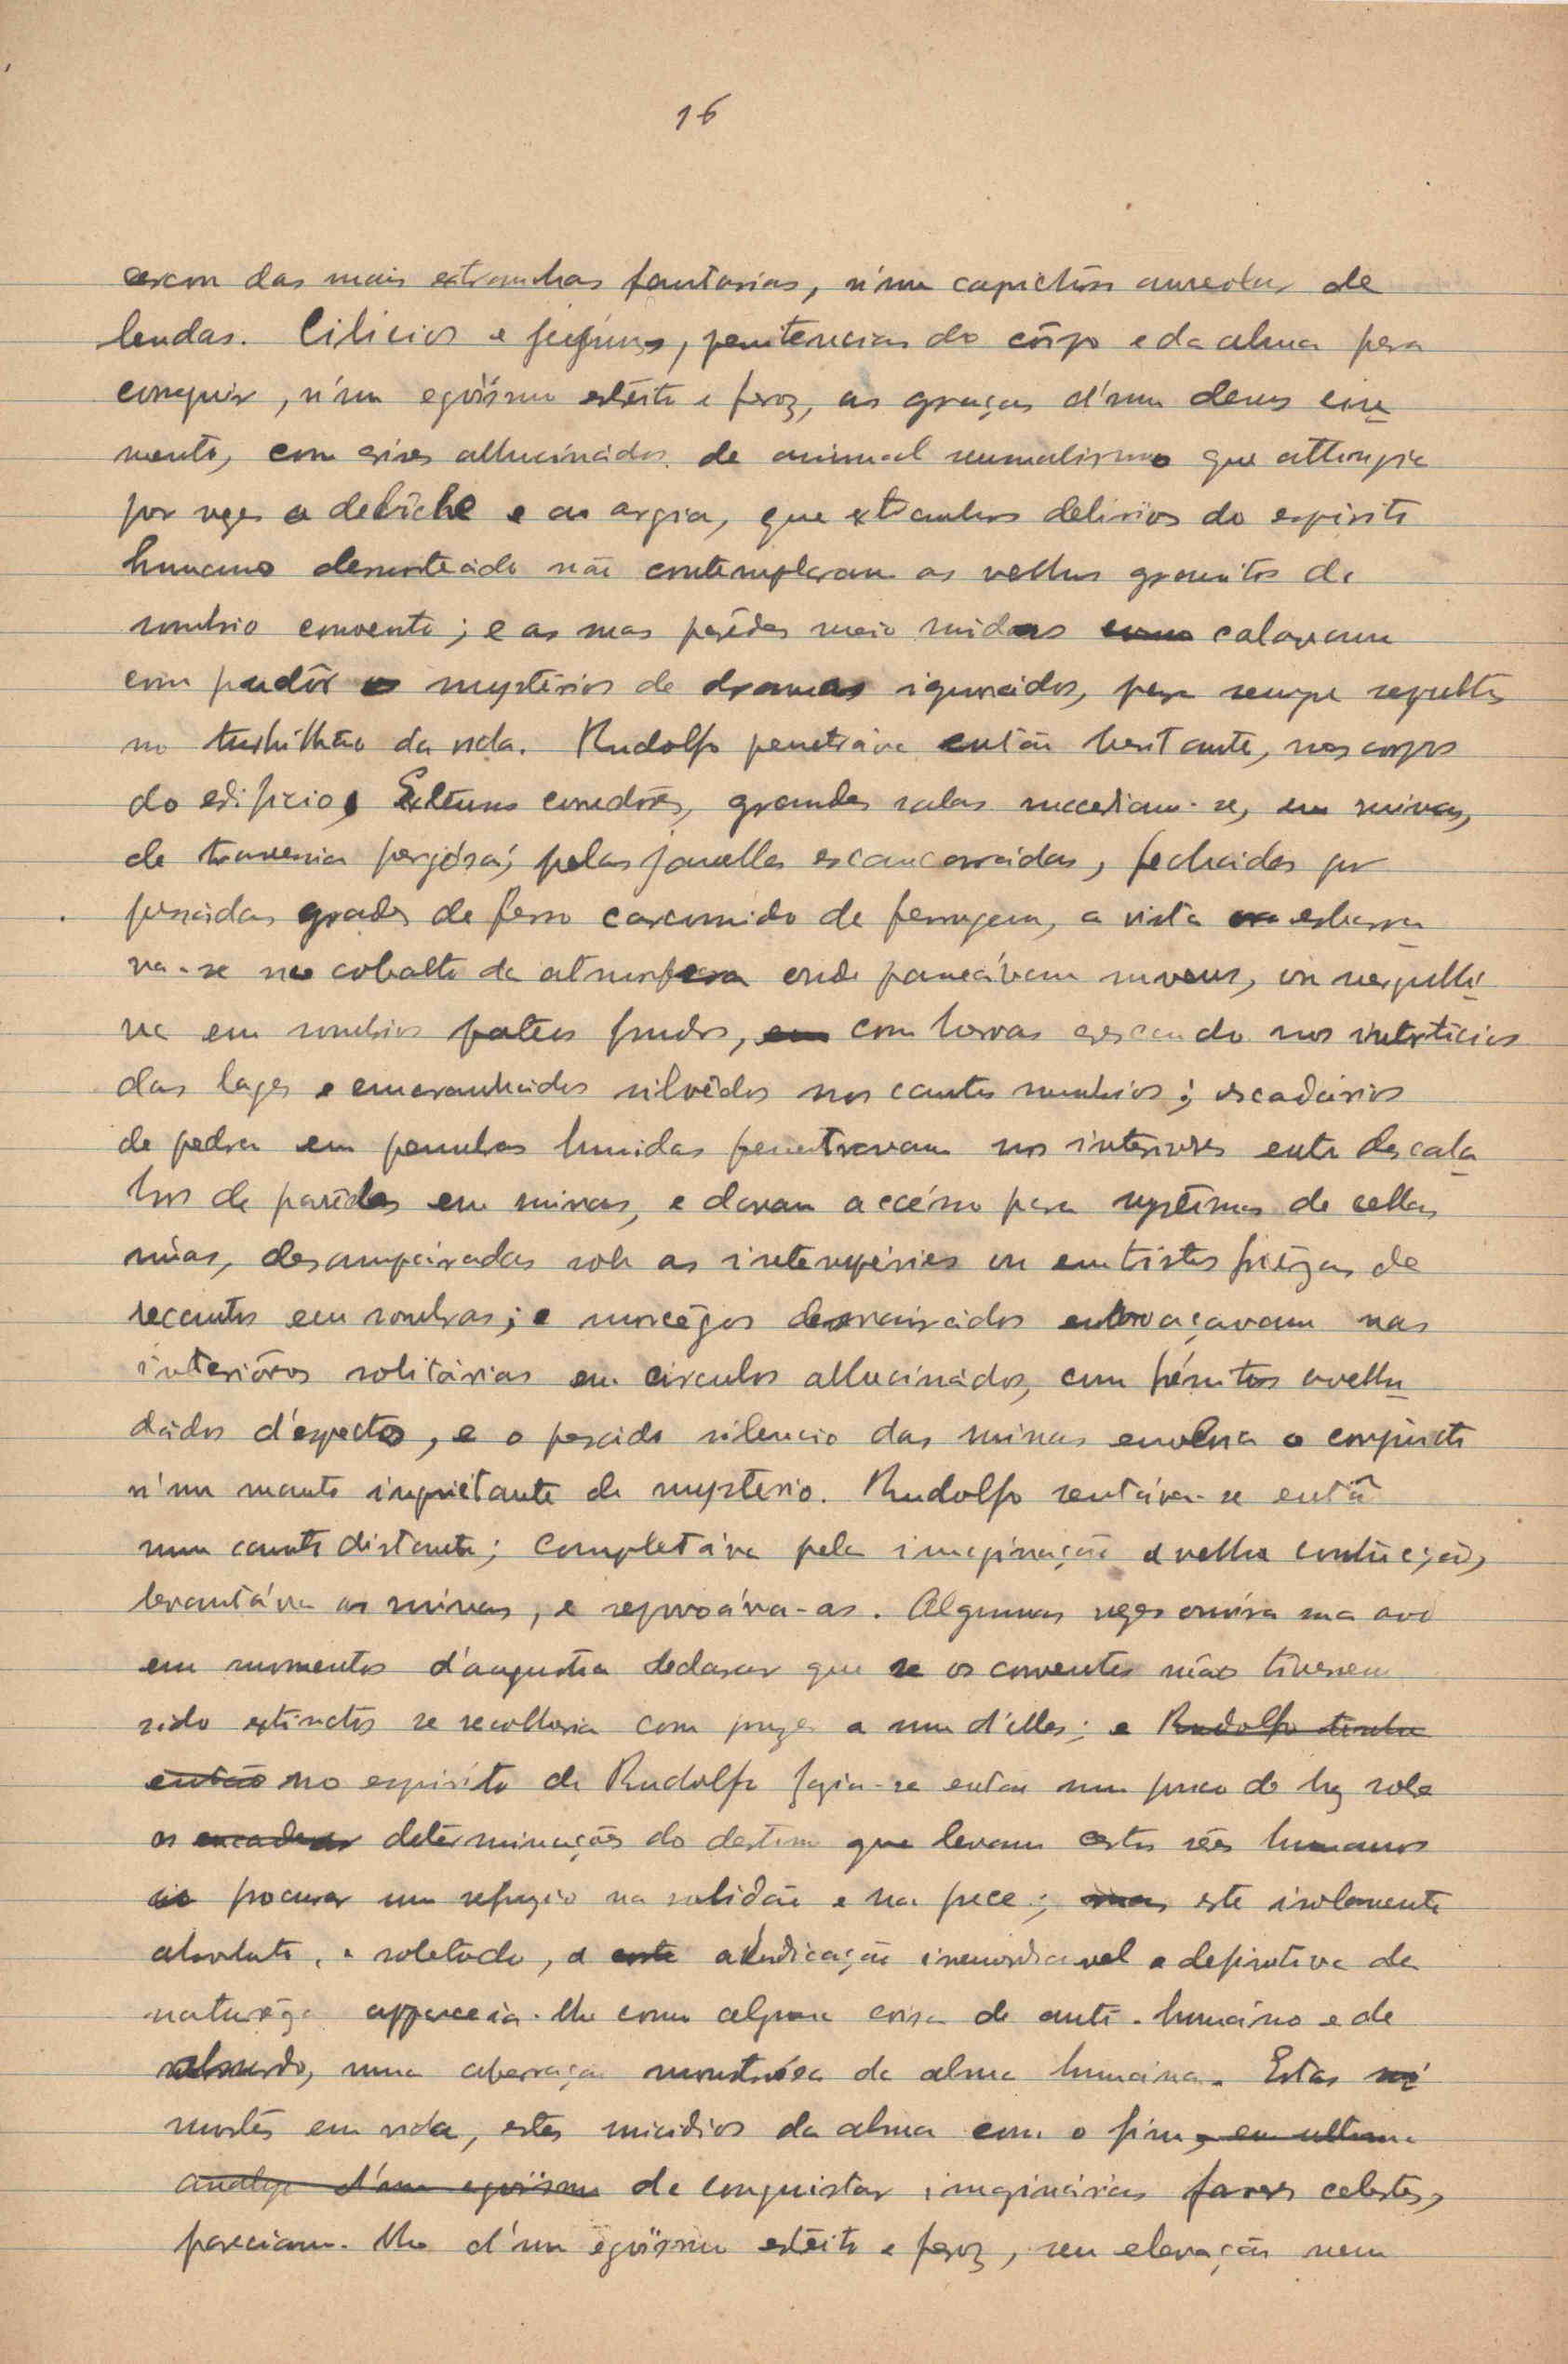 16
das mais extranhas fantasias, n'um aureolar de
lendas. Cilicios e jejúns, penitencias do côrpo e da alma para
conseguir, n'um egoïsmo estrèito e feroz, as graças d'um deus cru
mento, com crises allucinádos de animal sensualismo que attingia
por vezes o debóche e as orgias, que extranhos delirios do espirito
humano desnorteádo não contemplaram os velhos granitos do
sombrio convento; e as suas parêdes meio ruidas como calavam
com pudôr os mystérios de dramas ignorádos, para sempre sepultos
no turbilhão da vida. Rudolfo penetráva então hesitante, nos corpos
do edificio, Extensos corredôres, grandes salas succediam-se, em ruinas,
de travessia perigósa; pelas janellas escancarádas, fechadas por
pesádas grades de ferro carcomido de ferrugem, a vista ou esbarra
va-se no cobalto da atmosfera onde pameávam nuvens, ou mergulhá
va em sombrios pateos fundos, em com hervas crescendo nos intersticios
das lages e emaranhádos silvêdos nos cantos sombrios; escadárias
de pedra em penumbras humidas penetravam nos interiores entre descala
bros de parêdes em ruinas, e davam accésso para systémas de cellas
núas, desamparadas sob as intempéries ou em tristes friêzas de
recantos em sombras; e morcêgos desvairádos esvoaçavam nas
interióres solitárias em circulos allucinádos, com frémitos avellu
dádos d'espectros, e o pesádo silencio das ruinas envolvia o conjuncto
n'um manto inquiétante de mysterio. Rudolfo sentáva-se então
num canto distante; completáva pela imaginação a velha construcção,
levantáva as ruinas, e repovoáva-as. Algumas vezes ouvíra sua avó
em momentos d'angustia declarar que se os conventos não tivessem
sido extinctos se recolheria com prazer a um d'elles; e Rudolfo tinha
então no espirito de Rudolfo fazia-se então um pouco de luz sobre
as encadear determinações do destino que levam certos sêres humanos
a procurar um refugio na solidão e na prece; mas este isolamento
absoluto, e sobretudo, a esta abdicação irremediavel e definitiva da
naturêza apparecia-lhe como alguma coisa de anti-humáno e de
absurdo, uma aberração monstruósa da alma humána. Estas
mortês em vida, estes suicidios da alma com o fim, em ultima
analyse d'um egoïsmo de conquistar imaginários favores celestes,
pareciam-lhe d'um egoïsmo estrèito e feroz, sem elevação nem